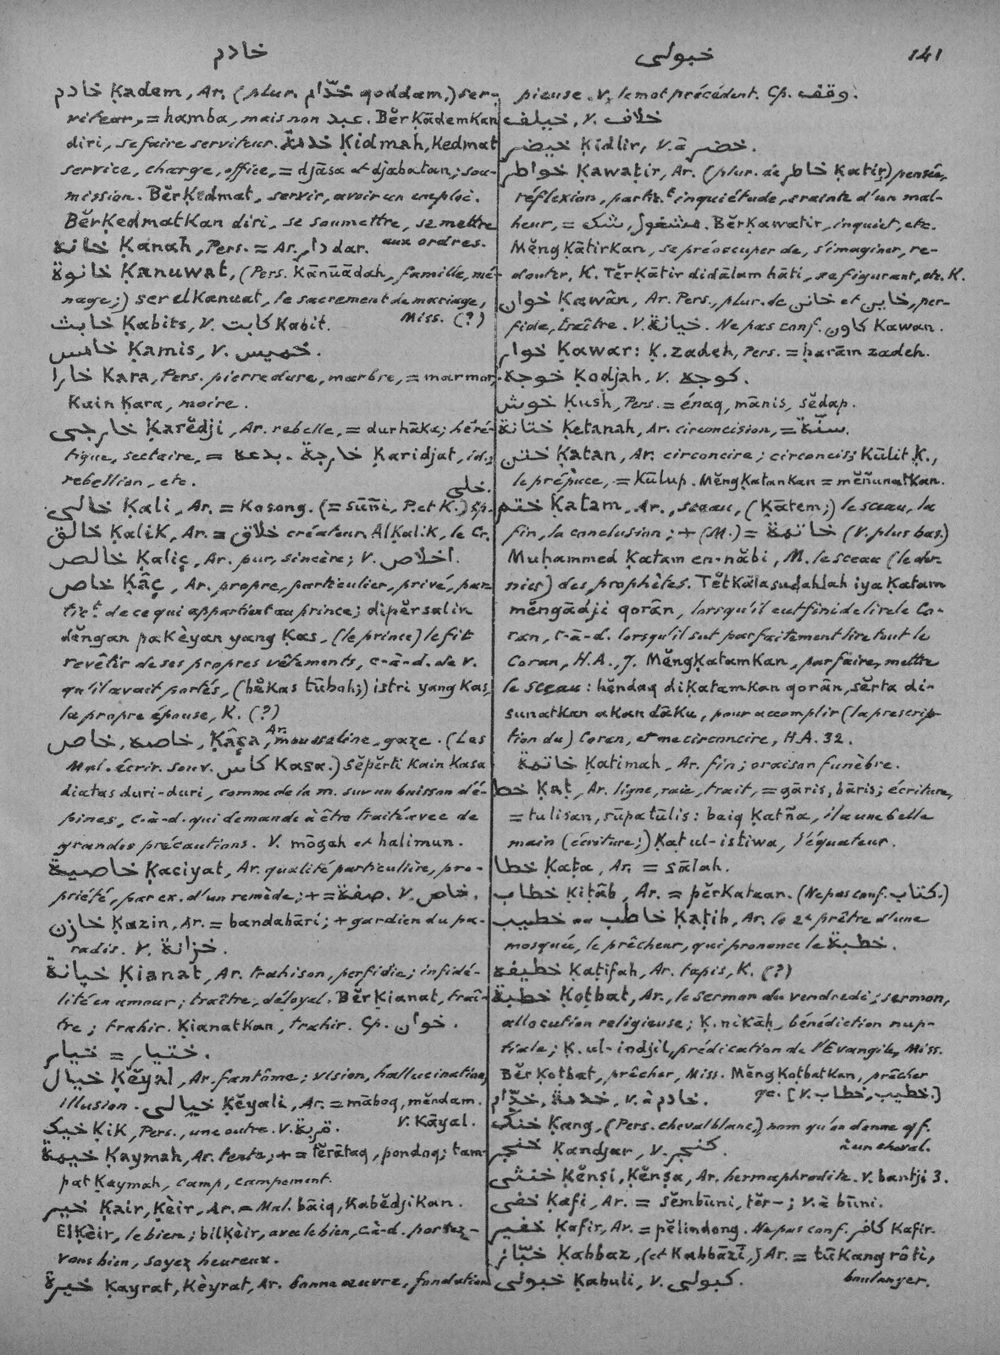 خادم
خبولي
141
خادم Ḳadem, Ar. (plur. خدّام qoddam,) ser-
viteur, = hamba, mais non عبد. BĕrḲādemKan
diri, se faire serviteur. خدمة Ḳidmah, Kedmat
service, charge, office, = djāsa et djabatan; sou-
mission. BĕrḲedmat, servir, avoir un emploi.
BĕrḲedmatKan diri, se soumettre, se mettre
aux ordres.
خانه Ḳanah, Pers. = Ar. دار dar.
خانوة Ḳanuwat, (Pers. Ḳānūādah, famille, mé-
nage;) ser elḲanuat, le sacrement de mariage,
Miss. (?)
خابث Ḳabits, V. كابت Kabit.
خامس Ḳamis, V. خميس.
خارا Ḳara, Pers. pierre dure, marbre, = marmar,
Kain Ḳara, moire.
خارجي Ḳarĕdji, Ar. rebelle, = durhāka; héré-
tique, sectaire, = بدعه. خارجة Ḳaridjat, id.;
rebellion, etc.
خلي.
خالي Ḳali, Ar. = Kosong. (= sūñi, P. et K.) Cp.
خالق ḲaliK, Ar. = خلاق créateur, AlḲaliK, le Cr.
خالص Ḳaliç, Ar. pur, sincère; V. اخلاص.
خاص Ḳâç, Ar. propre, particulier, privé, par-
tict. de ce qui appartient au prince; dipĕrsalin
dĕngan paKèyan yang Ḳas, (le prince) le fit
revêtir de ses propres vêtements, c-à-d. de v.
qu'il avait portés, (bĕKas tūboh;) istri yang Ḳas,
la propre épouse, K. (?)
خاصه, خاص, Ḳâça, Ar. moussaline, gaze. (Les
Mal. écrir. souv. كاس Kasa.) Sĕpĕrti Kain Kasa
diatas duri-duri, comme de la m. sur un buisson d'é-
pines, c-à-d. qui demande à être traité avec de
grandes précautions. V. mōgah et halimun.
خاصية Ḳaciyat, Ar. qualité particulière, pro-
priété, par ex. d'un remède; + = صفة. V. خاص.
خازن Ḳazin, Ar. = bandahāri; + gardien du pa-
radis. V. خزانة.
خيانة Ḳianat, Ar. trahison, perfidie; infidé-
lité en amour; traître, déloyal. BĕrḲianat, traî-
tre; trahir. ḲianatKan, trahir. Cp. خوان.
خيار = ختيار.
خيال Ḳĕyal, Ar. fantôme; vision, hallucination,
illusion. خيالي Ḳĕyali, Ar. = māboq, mĕndam.
V. Kāyal.
خيک ḲiK, Pers., une outre. V. قربة.
خيمة Ḳaymah, Ar. tente; + = tĕrātaq, pondoq; tam-
pat Ḳaymah, camp, campement.
خير Ḳair, Ḳèir, Ar. = Mal. bāiq, KabĕdjiKan.
ElḲèir, le bien; bilḲèir, avec le bien, c.à-d. portez-
vous bien, soyez heureux.
خيرة Ḳayrat, Ḳèyrat, Ar. bonne œuvre, fondation
pieuse. V. le mot précédent. Cp. وقف.
خيلف, V. خلاف.
خيضر Ḳidlir, V. à خضر.
خواطر Ḳawaṭir, Ar. (plur. de خاطر Ḳatir) pensée,
réflexion, partict. inquiétude, crainte d'un mal-
heur, = مشغول, شک. BĕrḲawatir, inquiet, etc.
MĕngḲātirKan, se préoccuper de, s'imaginer, re-
douter, K. TĕrḲātir didālam hāti, se figurant, etc. K.
خوان Ḳawân, Ar. Pers., plur. de خانن et خاين, per-
fide, traître. V. خيانة. Ne pas conf. كاون Kawan.
خوار Ḳawar: Ḳ. zadeh, Pers. = ḥarām zadeh.
خوجه Ḳodjah, V. كوجه.
خوش Ḳush, Pers. = énaq, mānis, sĕdap.
ختانة Ḳetanah, Ar. circoncision, = سنّة.
ختن Ḳatan, Ar. circoncire; circoncis; Kūlit Ḳ.,
le prépuce, = Kūlup. MĕngḲatanKan = mĕñunatKan.
ختم Ḳatam, Ar., sceau, (Ḳātem;) le sceau, la
fin, la conclusion; + (M.) = خاتمة (V. plus bas.)
Muḥammed Ḳatam en-nābi, M. le sceau (le der-
nier) des prophètes. TĕtKāla sudahlah iya Ḳatam
mĕngādji qorân, lorsqu'il eut fini de lire le Co-
ran, c-à-d. lorsqu'il sut parfaitement lire tout le
Coran, H.A., J. MĕngḲatamKan, parfaire, mettre
le sceau: hĕndaq diḲatamKan qorân, sĕrta di-
sunatKan aKan dāKu, pour accomplir (la prescrip-
tion du) Coran, et me circoncire, H.A. 32.
خاتمة Ḳatimah, Ar. fin; oraison funèbre.
خط Ḳaṭ, Ar. ligne, raie, trait, = gāris, bāris; écriture,
= tulisan, rūpa tūlis: baiq Ḳatña, il a une belle
main (écriture;) Ḳaṭ ul-istiwa, l'équateur.
خطا Ḳaṭa, Ar. = sālah.
خطاب Ḳiṭâb, Ar. = pĕrKataan. (Ne pas conf. كتاب.)
خطيب ou خاطب Ḳaṭib, Ar. le 2e prêtre d'une
mosquée, le prêcheur, qui prononce le خطبة.
خطيفه Ḳatifah, Ar. tapis, K. (?)
خطبة Ḳoṭbat, Ar., le sermon du vendredi; sermon,
allocution religieuse; Ḳ. nikāḥ, bénédiction nup-
tiale; Ḳ. ul-indjil, prédication de l'Evangile, Miss.
BĕrḲotbat, prêcher, Miss. MĕngḲoṭbatKan, prêcher
qc. [V. خطيب, خطاب.]
خدمة, خدّام, V. à خادم.
خنک Ḳang, (Pers. cheval blanc,) nom qu'on donne qf.
à un cheval.
خنجر Ḳandjar, V. كنجر.
خنثى Ḳĕnsi, Ḳĕnṣa, Ar. hermaphrodite. V. bantji 3.
خفي Ḳafi, Ar. = sĕmbūni, tĕr-; V. à būni.
خفير Ḳafir, Ar. = pĕlindong. Ne pas conf. كافر Kafir.
خبّاز Ḳabbaz, (et Kabbāzī,) Ar. = tūKang rôti,
boulanger.
خبولي Ḳabuli, V. كبولي.